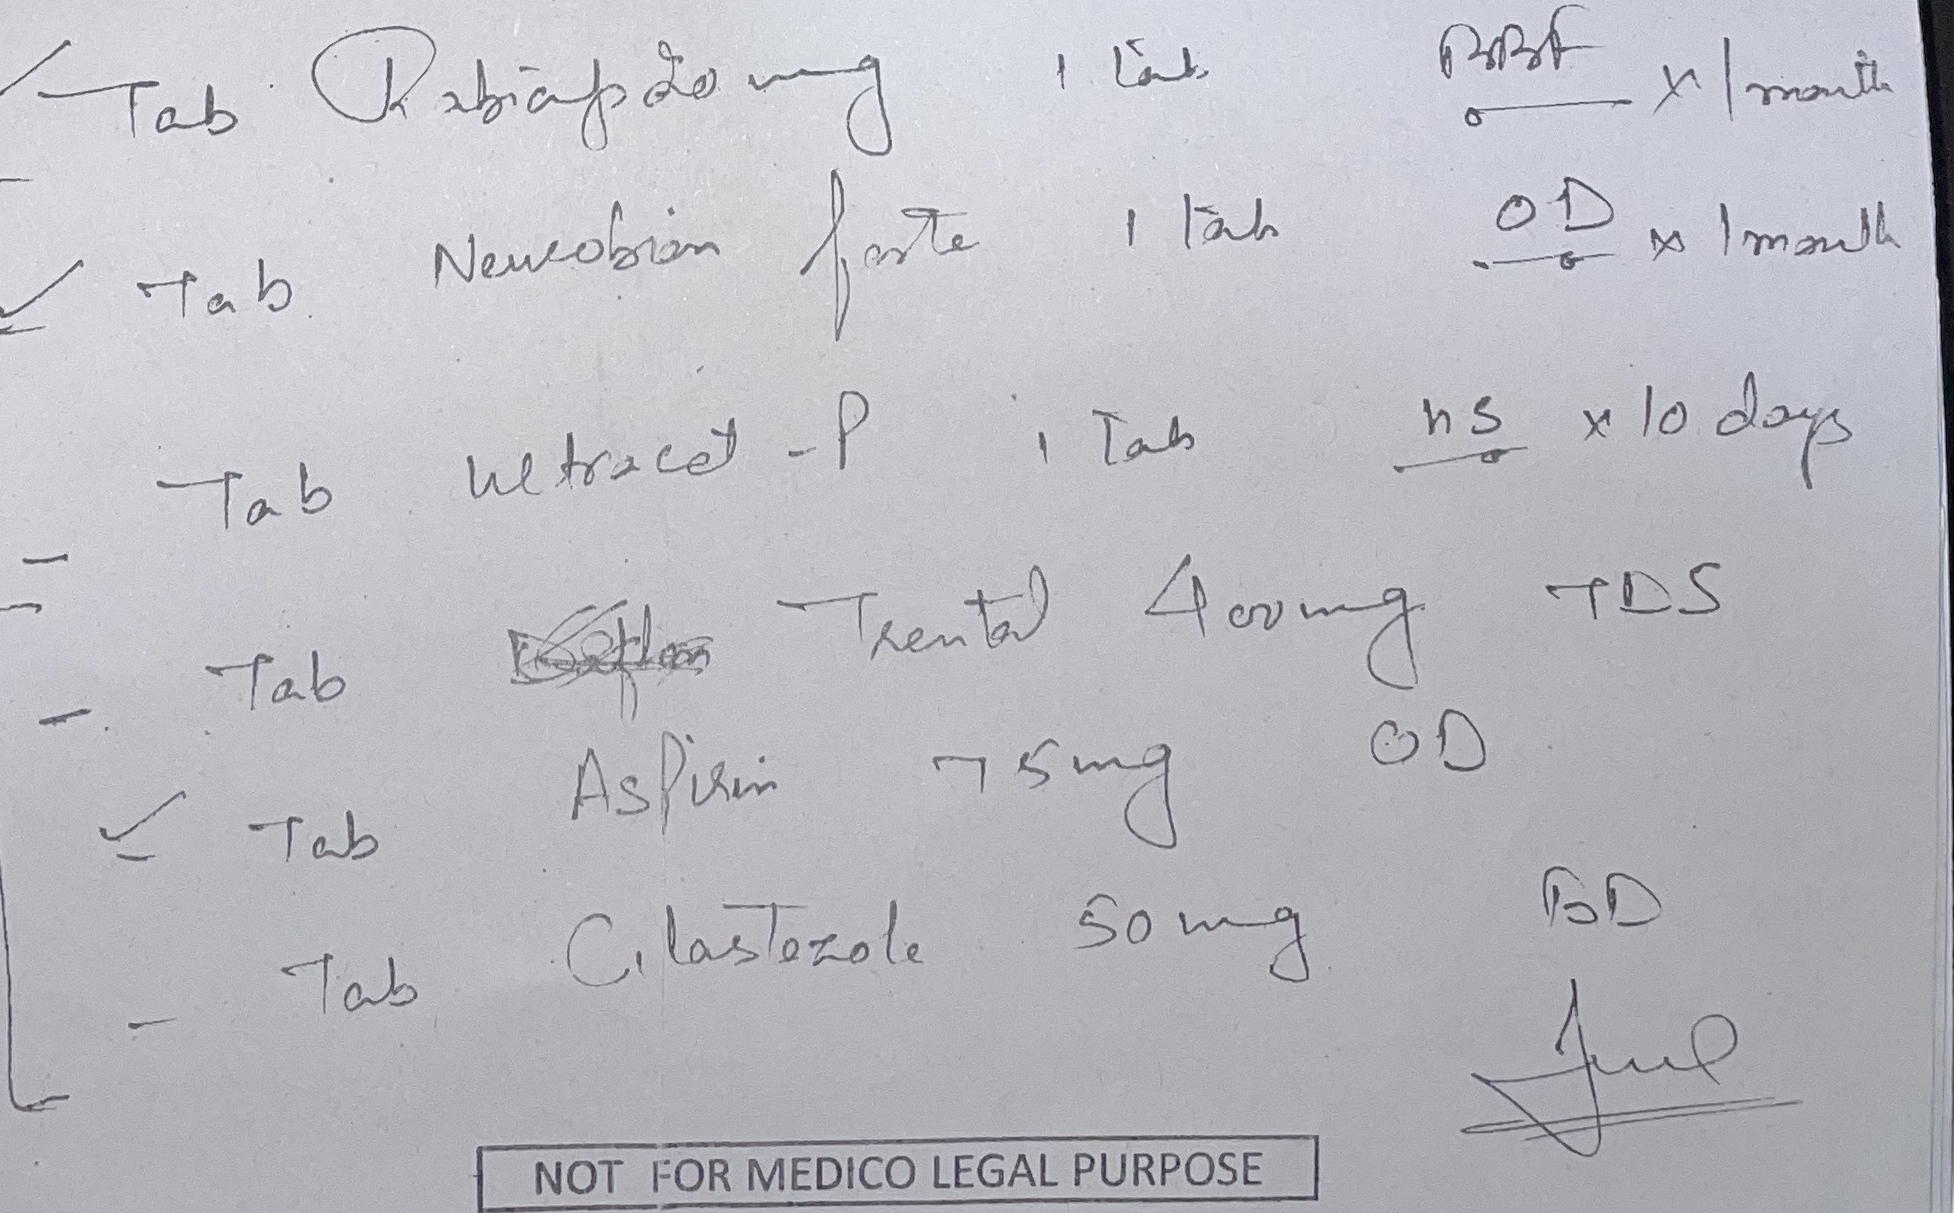 Tab Rabiap 20 mg 1 tab BBF x 1 month
Tab Neurobion forte 1 tab OD x 1 month
Tab Ultracet-P 1 Tab hS x 10 days
Tab Trental 400mg TDS
Tab Aspirin 75mg OD
Tab Cilastozole 50mg BD
NOT FOR MEDICO LEGAL PURPOSE